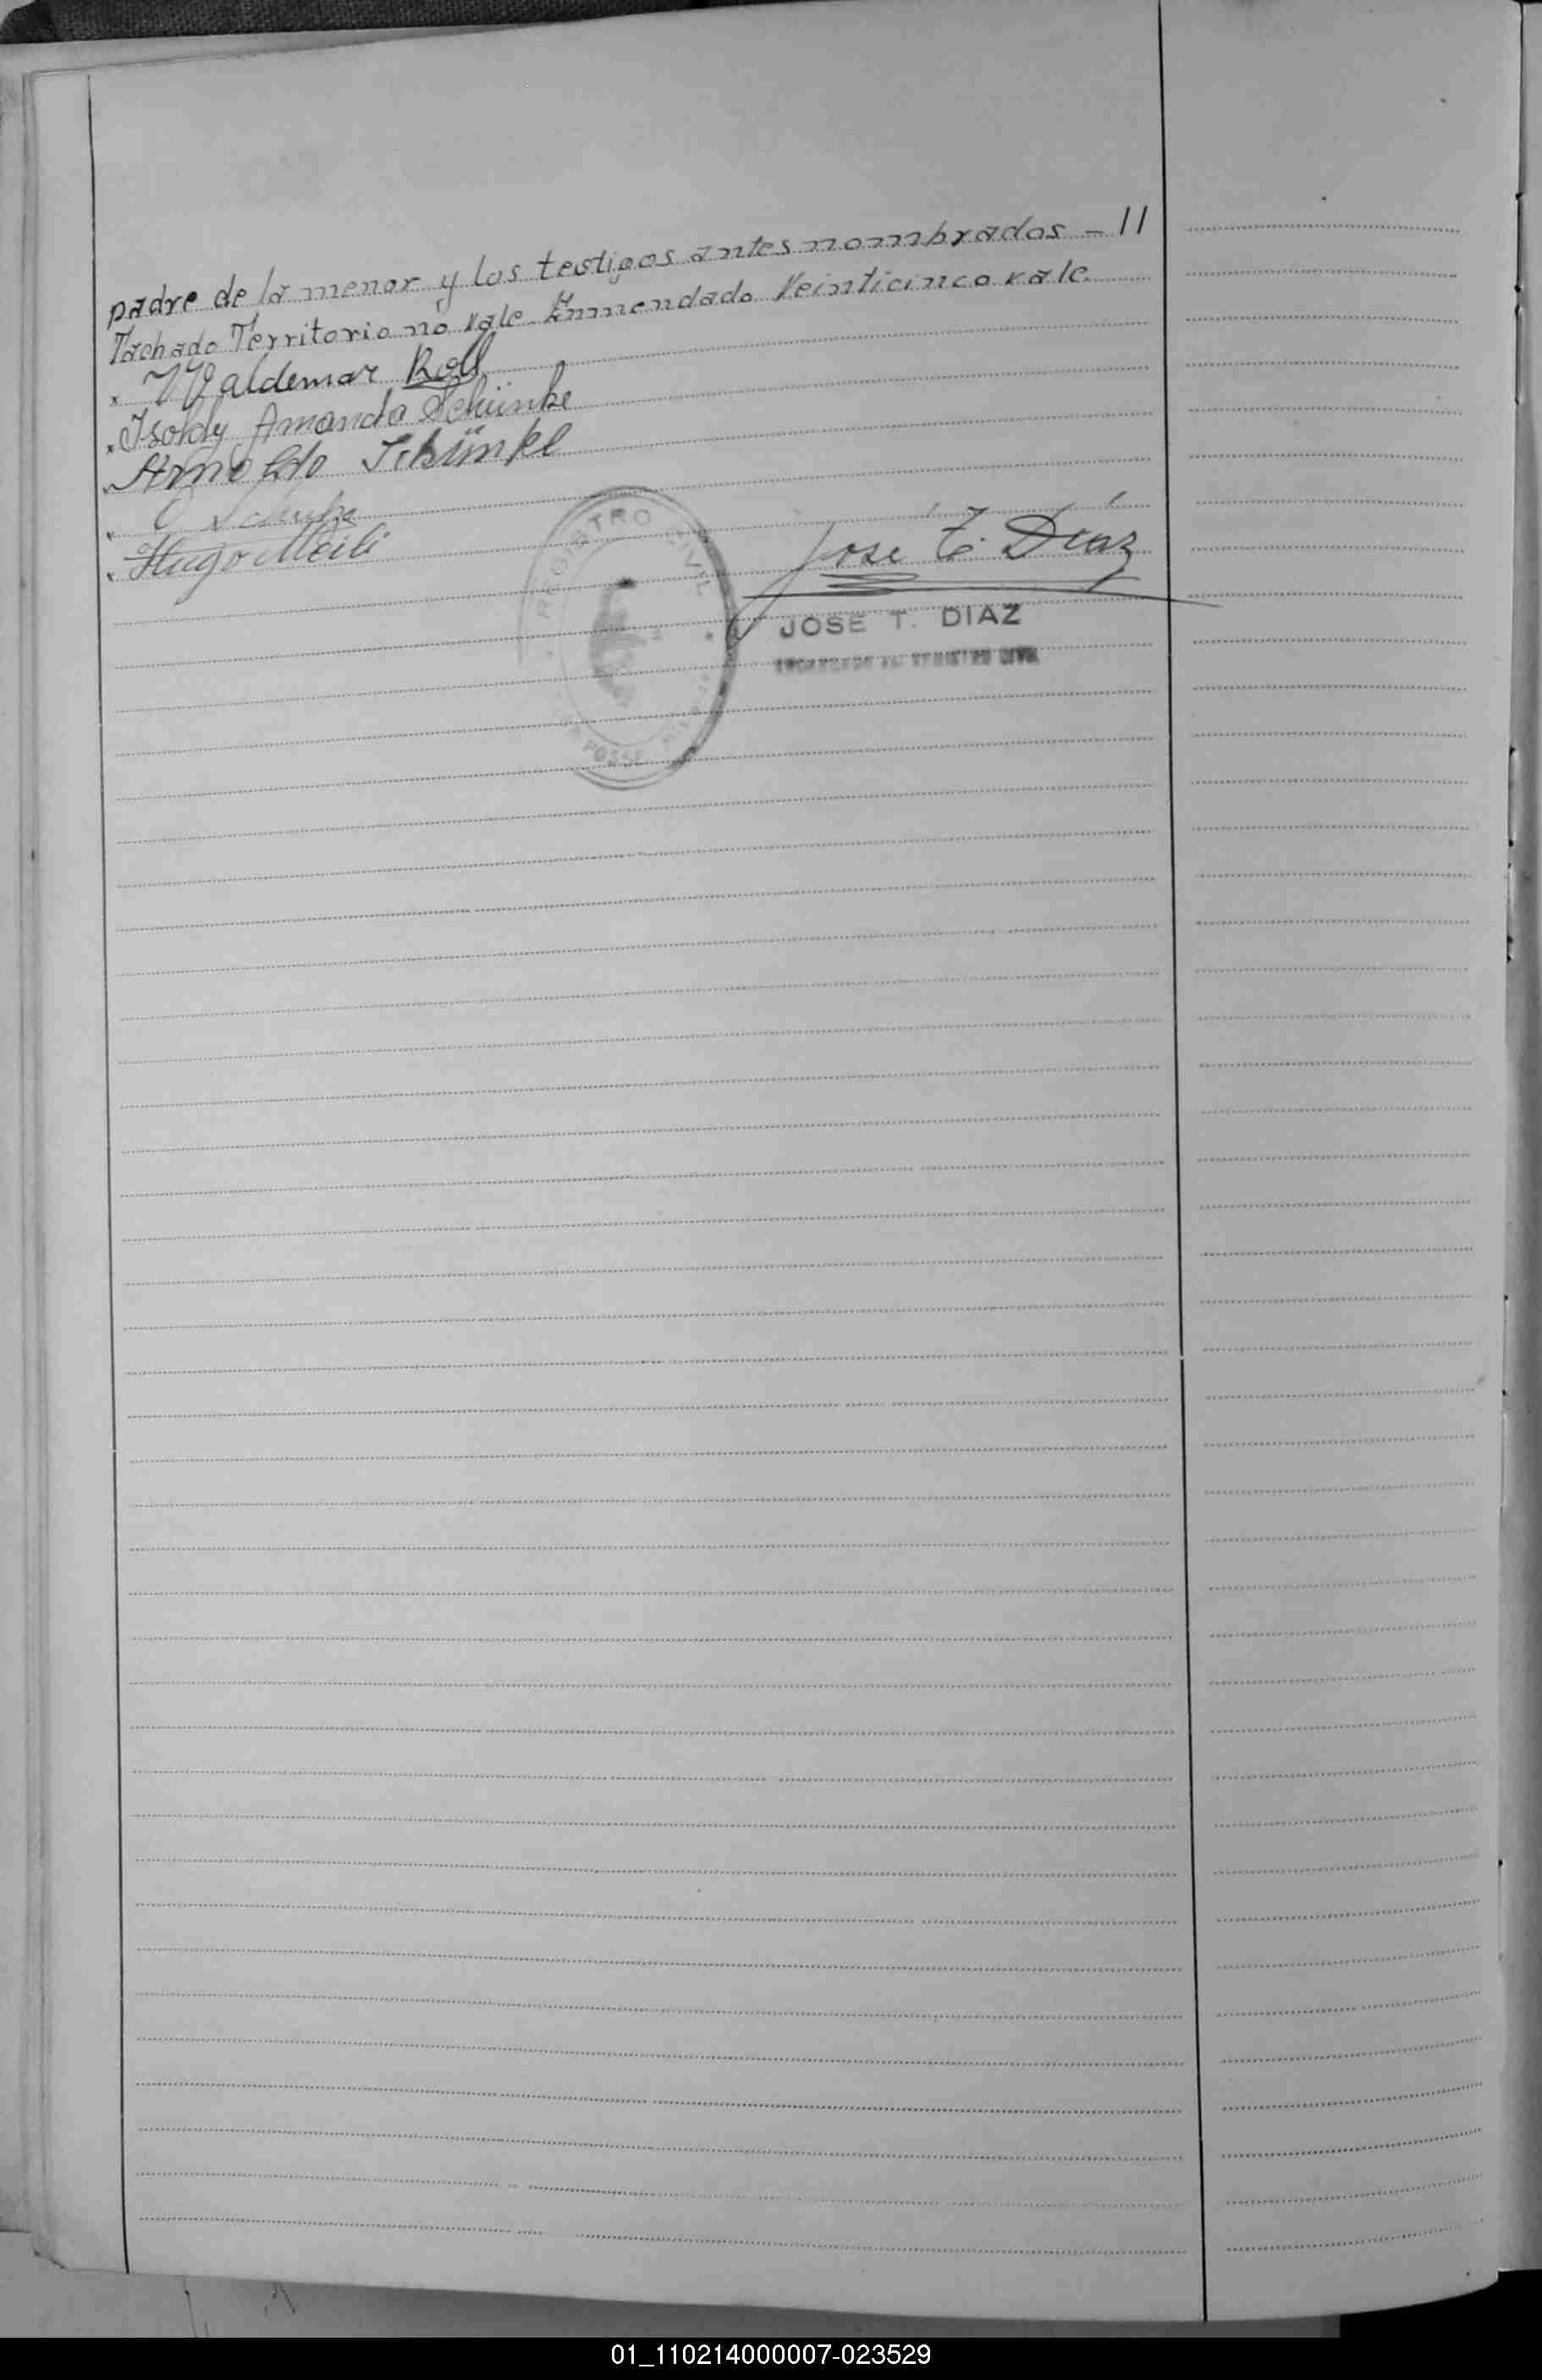 padre de la menor y los testigos antes nombrados - 11
Tachado Territorio no vale. Enmendado Veinticinco vale.
x Waldemar Roll
x Isoldy Amanda Schünke
x Arnoldo Schünke
x O Schunke
x Hugo Meili
REGISTRO CIVIL
POSSE
José T. Díaz
JOSE T. DIAZ
ENCARGADO DEL REGISTRO CIVIL
01_110214000007-023529